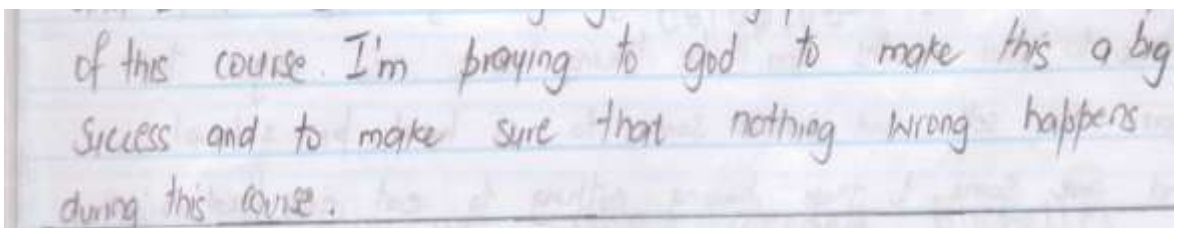 of this course. I'm praying to god to make this a big
success and to make sure that nothing wrong happens
during this course.